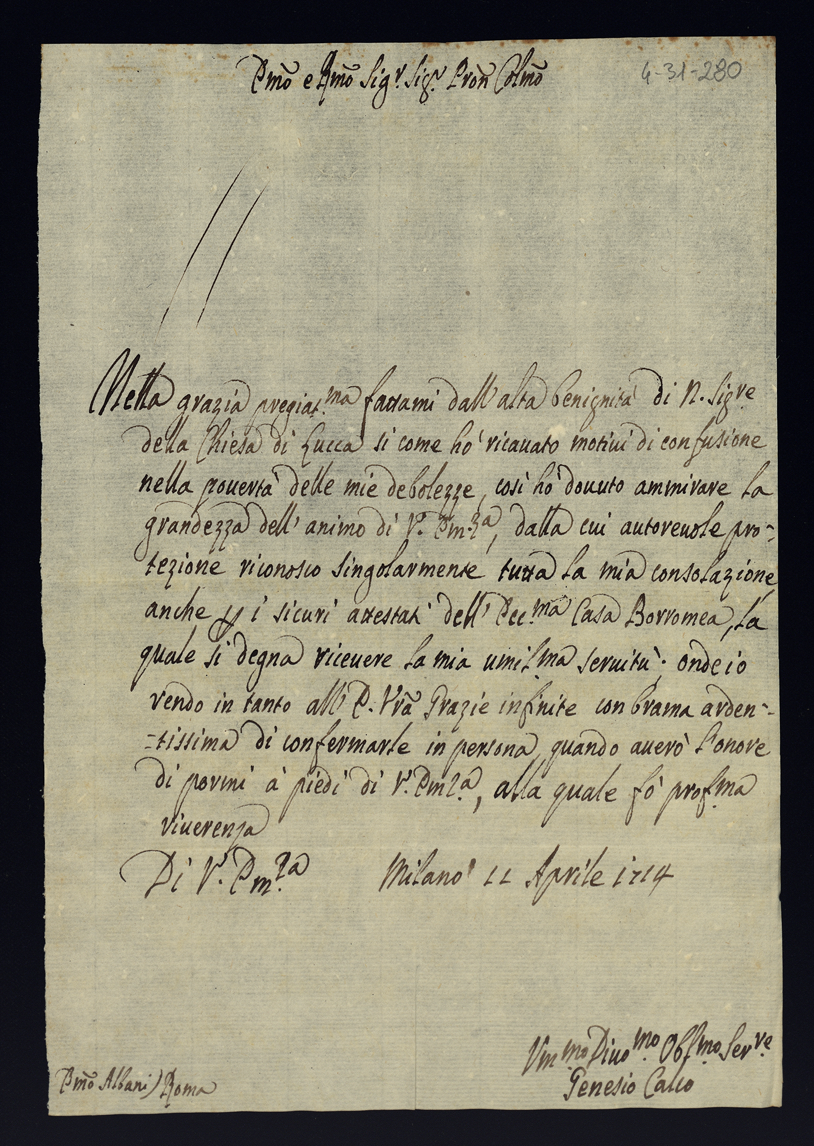 Emõ e Rmõ Sigr. Sigr. Pron Colmõ
4-31-280
Nella grazia pregiat.ma fattami dall'alta benignità di N. Sigre
della Chiesa di Lucca si come hò ricauato motiui di confusione
nella pouertà delle mie debolezze, così hò douuto ammirare la
grandezza dell'animo di V. Em.za, dalla cui autoreuole pro-
tezione riconosco singolarmente tutta la mia consolazione,
anche p i sicuri attestati dell'Ecc.ma Casa Borromea, la
quale si degna riceuere la mia umilma seruitù; onde io
rendo in tanto all'E. Vrã Grazie infinite con brama arden-
-tissima di confermarle in persona, quando auerò l'onore
di pormi à piedi di V. Emza, alla quale fò profma
riuerenza
Di V. Em.za Milano 11 Aprile 1714
Vmmo Diuomo. Obsmo Serve
Genesio Calco
Emõ Albani) Roma